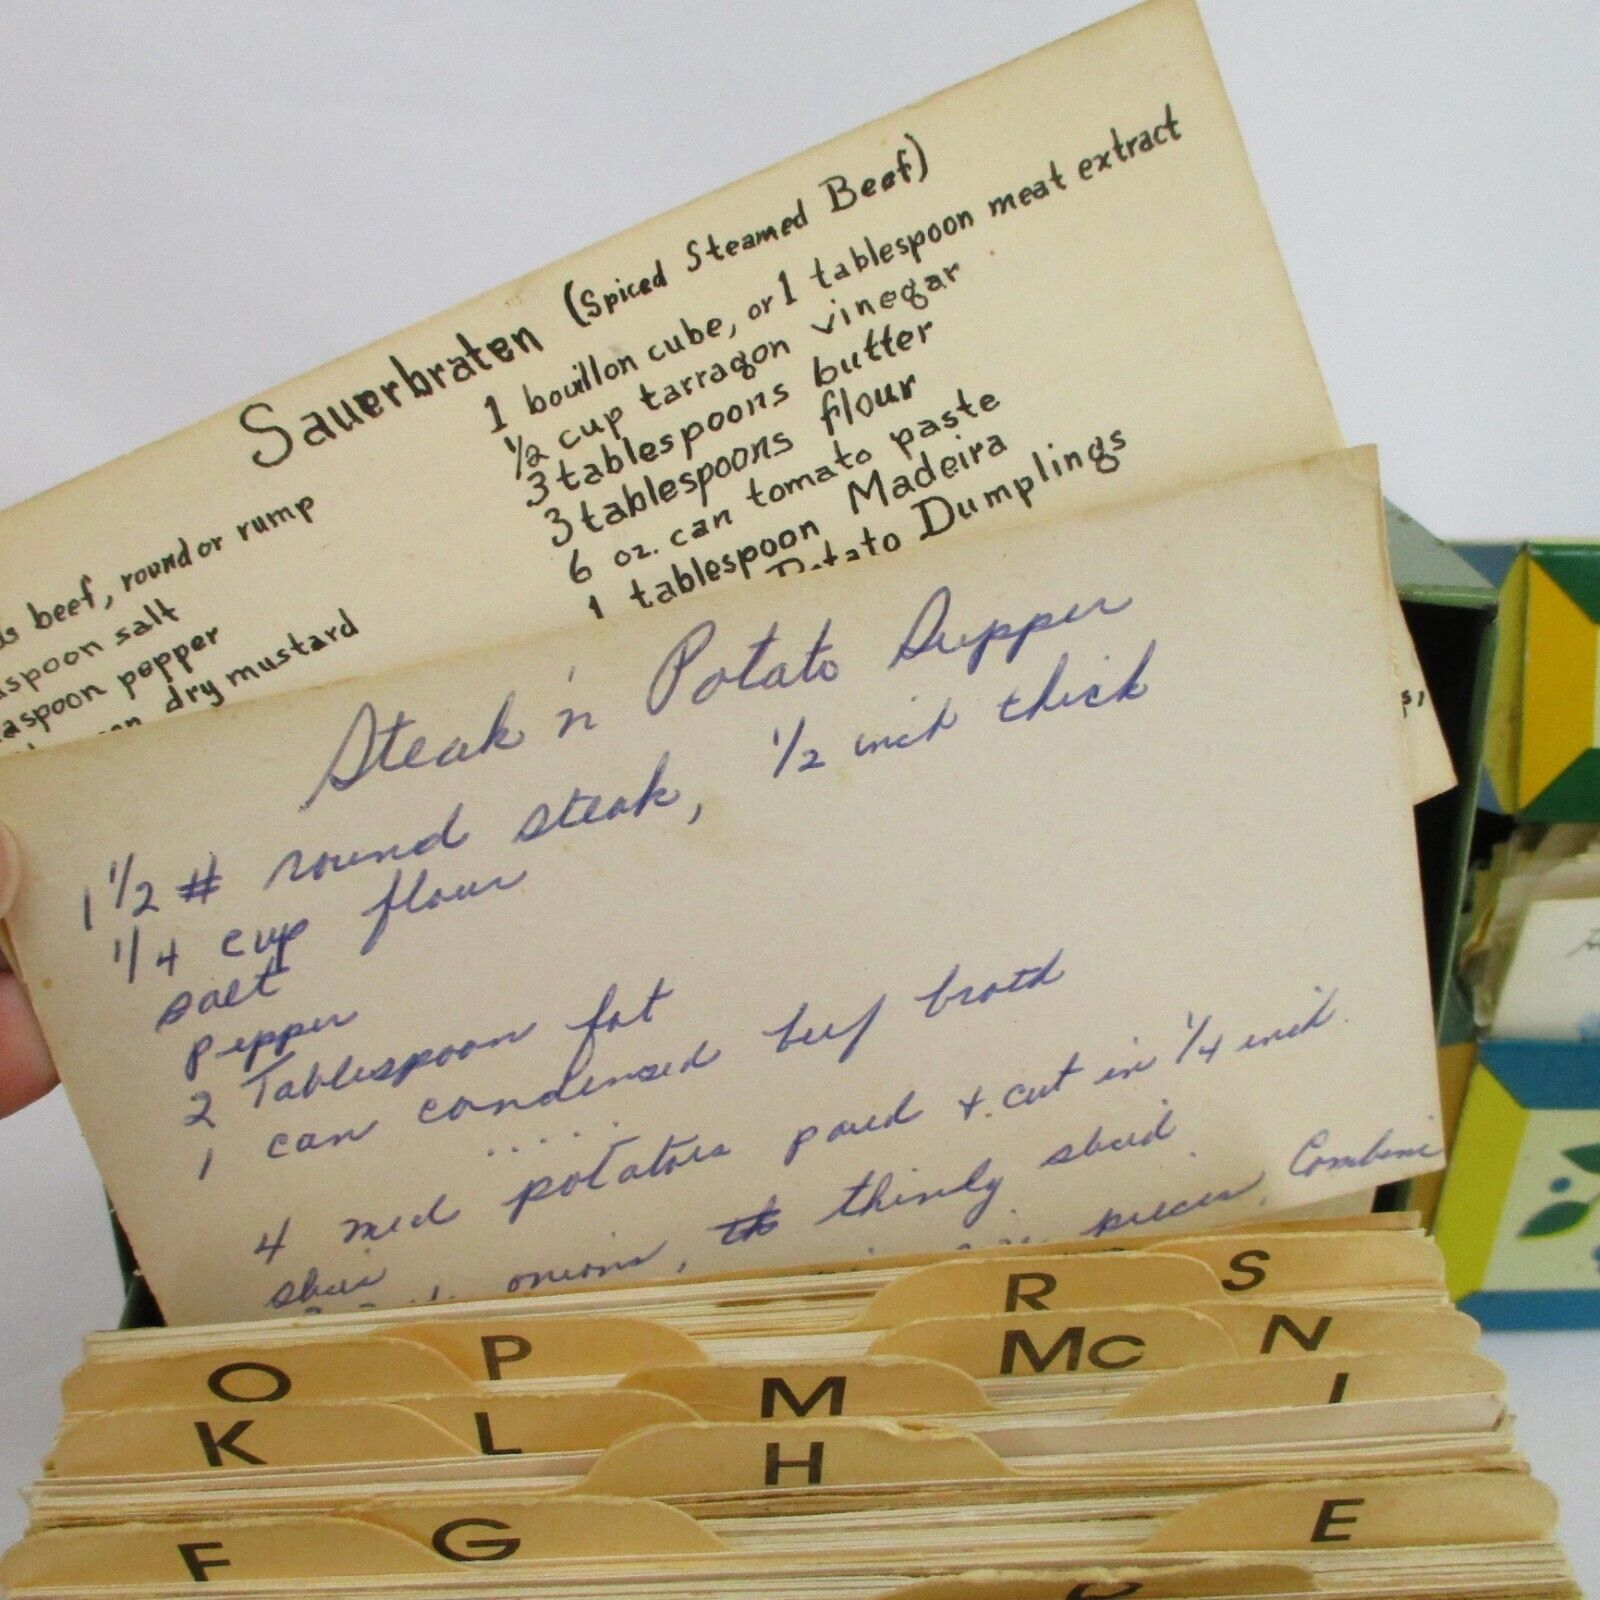 Sauerbraten (Spiced Steamed Beef)
beef, round or rump
spoon salt
aspoon pepper
dry mustard
1 bouillon cube, or 1 tablespoon meat extract
1/2 cup tarragon vinegar
3 tablespoons butter
3 tablespoons flour
6 oz. can tomato paste
1 tablespoon Madeira
Potato Dumplings
Steak 'n Potato Supper
1 1/2 # round steak, 1/2 inch thick
1/4 cup flour
salt
pepper
2 Tablespoon fat
1 can condensed beef broth
.....
4 med potatoes pared & cut in 1/4 inch
slices
onions, thinly sliced
pieces. Combine
R S
O P Mc N
K L M I
H
F G E